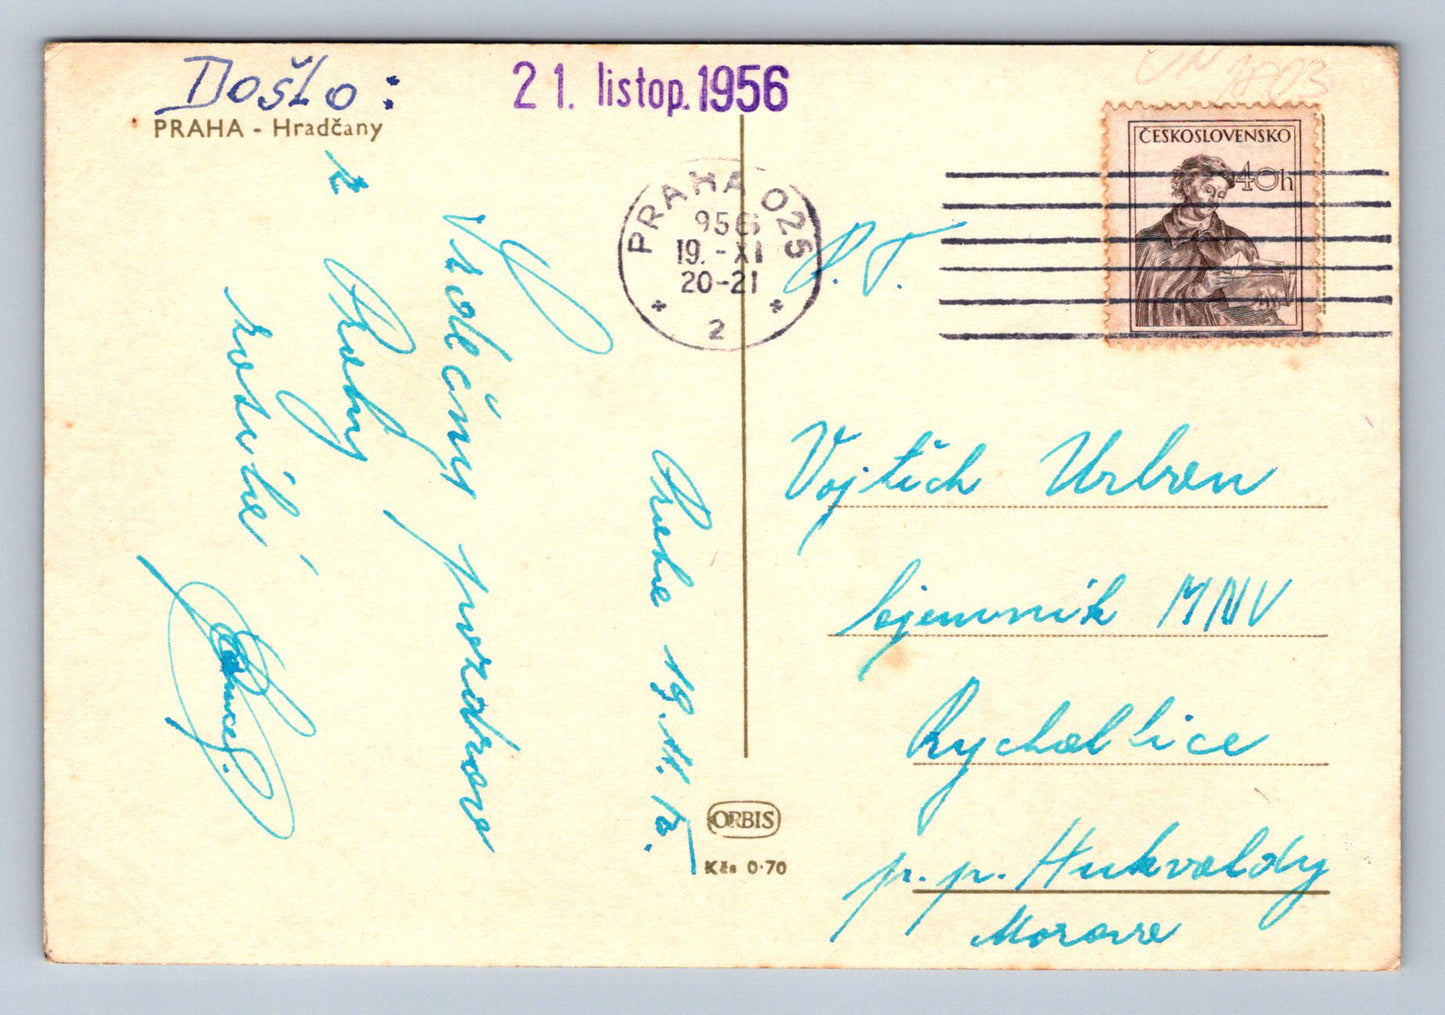 Došlo:
21. listop. 1956
PRAHA - Hradčany
ČESKOSLOVENSKO
40h
PRAHA 025
956
19. - XI
20-21
* 2 *
P. T.
Srdečný pozdrav
z Prahy
zasílá
Praha 19. 11.
Vojtěch Urban
tajemník MNV
Rychaltice
p. p. Hukvaldy
Morava
ORBIS
Kčs 0·70